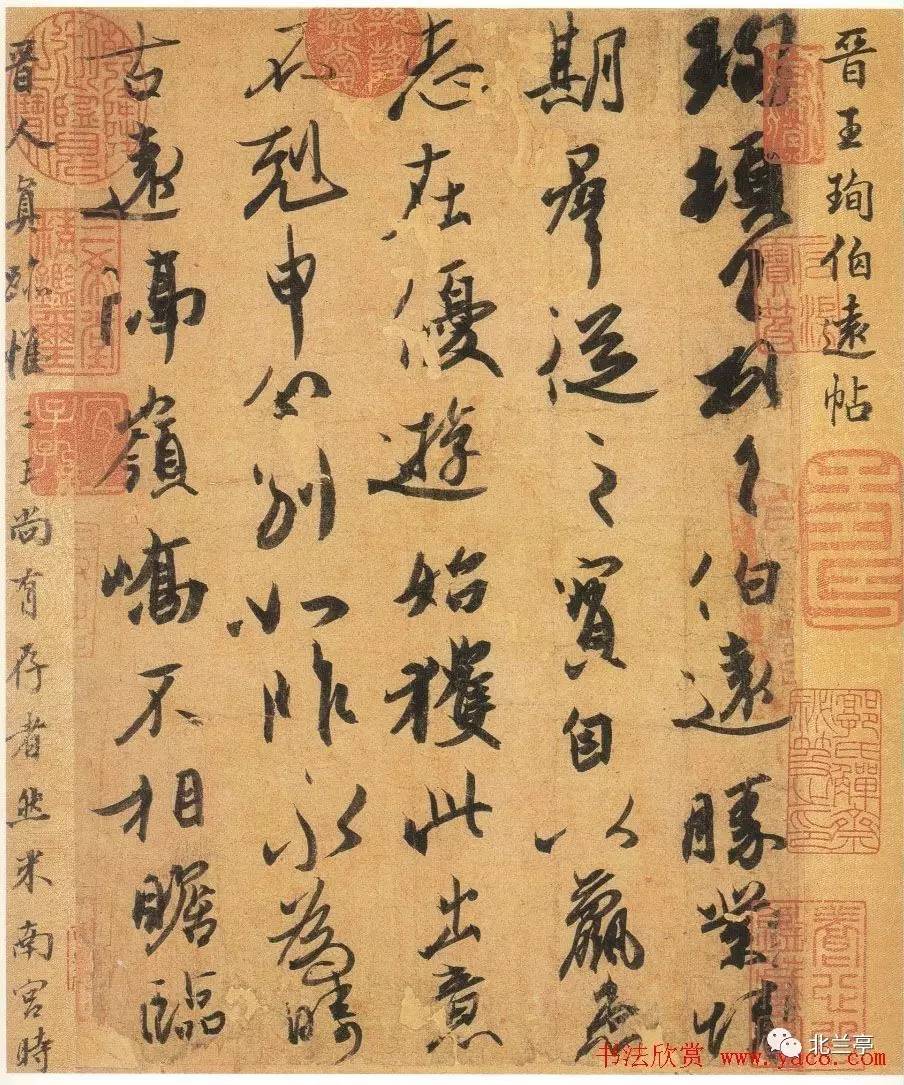 晋王珣伯遠帖
珣頓首頓首伯遠勝業情
期群從之寶自以羸患
志在優遊始獲此出意
不剋申分別如昨永為疇
古遠隔嶺嶠不相瞻臨
晋人真跡惟二王尚有存者然米南宮時
北兰亭
书法欣赏 www.yac8.com